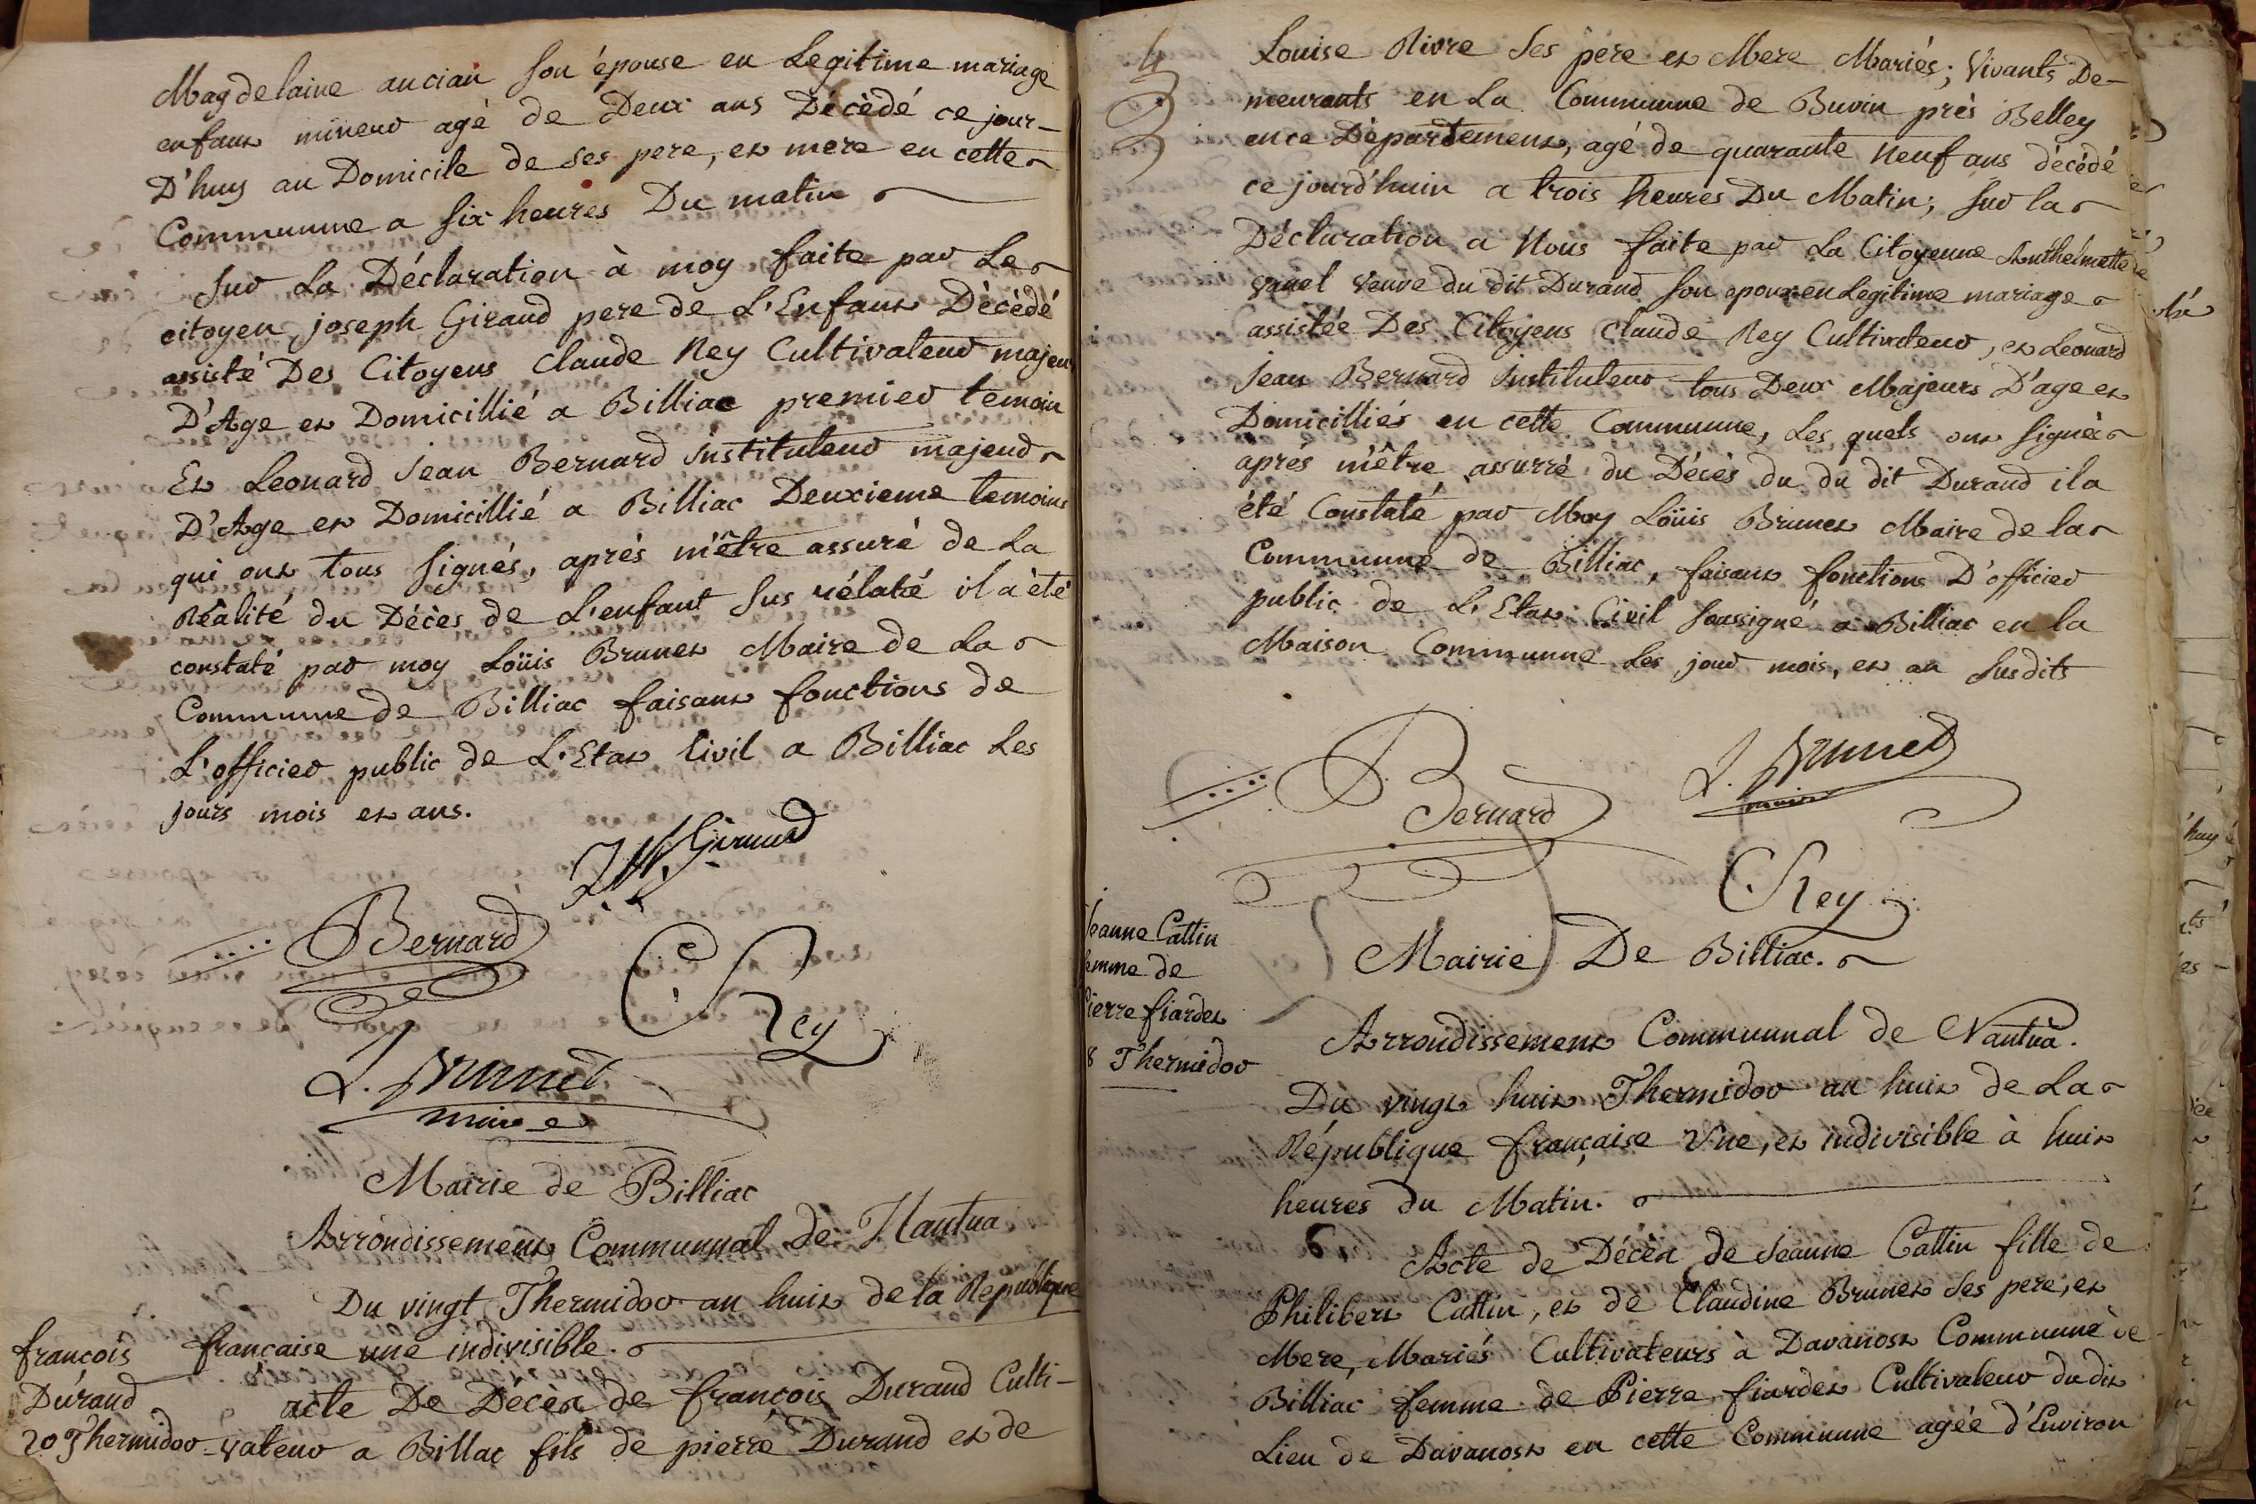 Magdelaine ancian son épouse en Legitime mariage
enfant mineur agé de Deux ans Décèdé ce jour-
D'huy au Domicile de ses pere, et mere en cette
Communne a six heures Du matin
sur La Déclaration à moy faite par Le
citoyen joseph Giraud pere de L'Enfant Dècèdé
assisté Des Citoyens Claude Rey Cultivateur majeur
D'Age et Domicillié a Billiac premier temoin
Et Leonard Jean Bernard Instituteur majeur
D'Age et Domicillié a Billiac Deuxieme temoins
qui ont tous signés, aprés m'être assuré de La
Réalité du Décès de L'enfant sus rélaté il a été
constaté par moy Loüis Brunet Maire de La
Communne de Billiac faisant fonctions de
L'officier public de L'Etat Civil a Billiac Les
jours mois et ans.
Giraud
Bernard
C Rey
L. Brunet
maire
Mairie de Billiac
Arrondissement Communnal de Nantua
Du vingt Thermidor an huit de la Republique
française une indivisible.
françois
Durand
20 Thermidor
acte De Décès de françois Durand Culti-
vateur a Billac fils de pierre Durand et de
4
Louise Rivre ses pere et Mere Mariés; Vivants De-
meurants en La Communne de Buvin près Belley
en ce Département, agé de quarante Neuf ans décédé
ce jourd'huin a trois heures Du Matin; sur la
Déclaration a Nous faite par La Citoyenne Anthelmette
vanel Veuve du dit Durand son epoux en Legitime mariage
assistée Des Citoyens Claude Rey Cultivateur, et Leonard
Jean Bernard Instituteur tous Deux Majeurs D'age et
Domicilliés en cette Communne, Les quels ont signès
aprés m'être assurré du Décès du du dit Durand il a
été Constaté par Moy Loüis Brunet Maire de la
Communne de Billiac, faisant fonctions D'officier
public de L'Etat Civil soussigné a Billiac en la
Maison Communne Les jour mois, et an susdits
Bernard
L. Brunet
maire
C Rey
Mairie De Billiac.
Jeanne Cattin
femme de
Pierre fiardet
8 Thermidor
Arrondissement Communnal de Nantua.
Du vingt huit Thermidor an huit de La
République française Une, et indivisible à huit
heures du Matin.
Acte de Décès de Jeanne Cattin fille de
Philibert Cattin, et de Claudine Brunet ses pere, et
Mere, Mariés Cultivateurs à Davanost Communne de
Billiac femme de Pierre fiardet Cultivateur du dit
Lieu de Davanost en cette Communne agée d'Environ